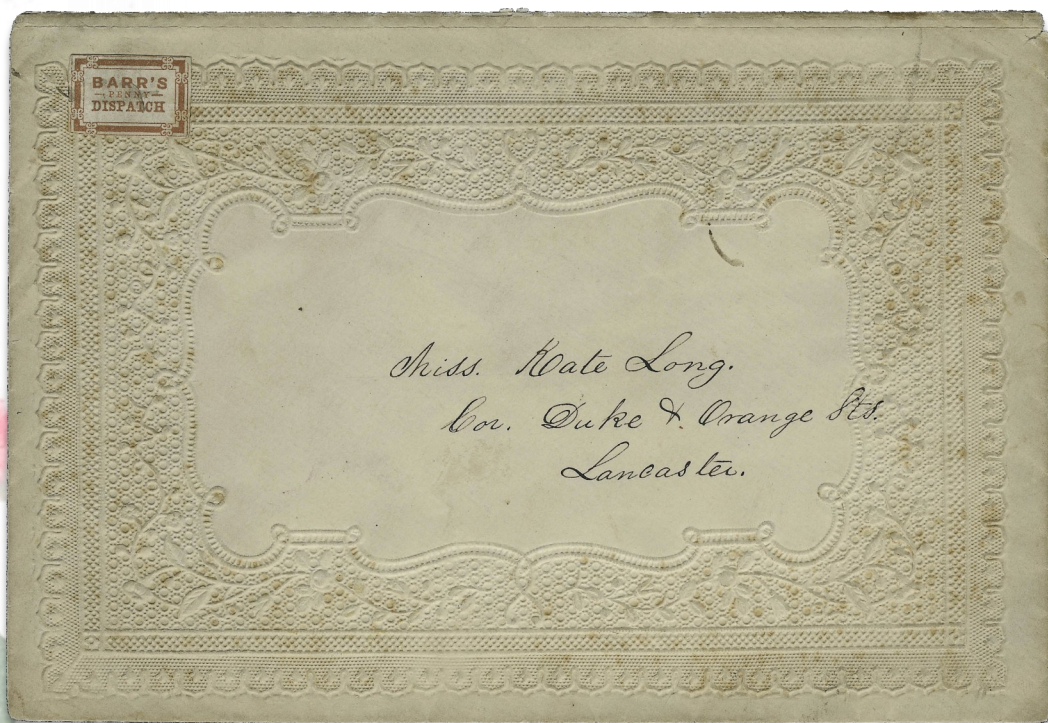 BARR'S
PENNY
DISPATCH
Miss. Kate Long.
Cor. Duke & Orange Sts.
Lancaster.